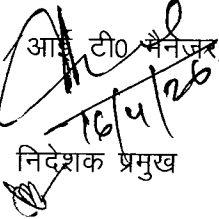 आई टी0 मैनेजर
16/4/26
निदेशक प्रमुख